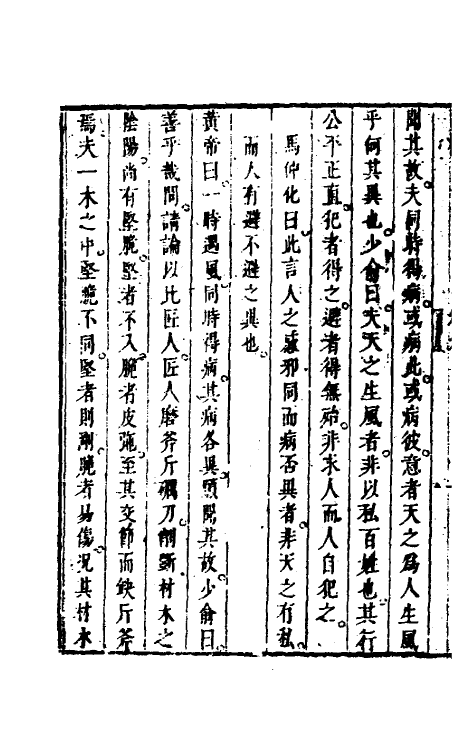 聞其故夫同時得病或病此或病彼意者天之爲人生風
乎何其異也少俞曰夫天之生風者非以私百姓也其行
公平正直犯者得之避者得無殆非求人而人自犯之
馬仲化曰此言人之感邪同而病否異者非天之有私
而人有避不避之異也
黃帝曰一時遇風同時得病其病各異願聞其故少俞曰
善乎哉問請論以比匠人匠人磨斧斤礪刀削斵材木之
陰陽尚有堅脆堅者不入脆者皮弛至其交節而缺斤斧
焉夫一木之中堅脆不同堅者則剛脆者易傷况其材木